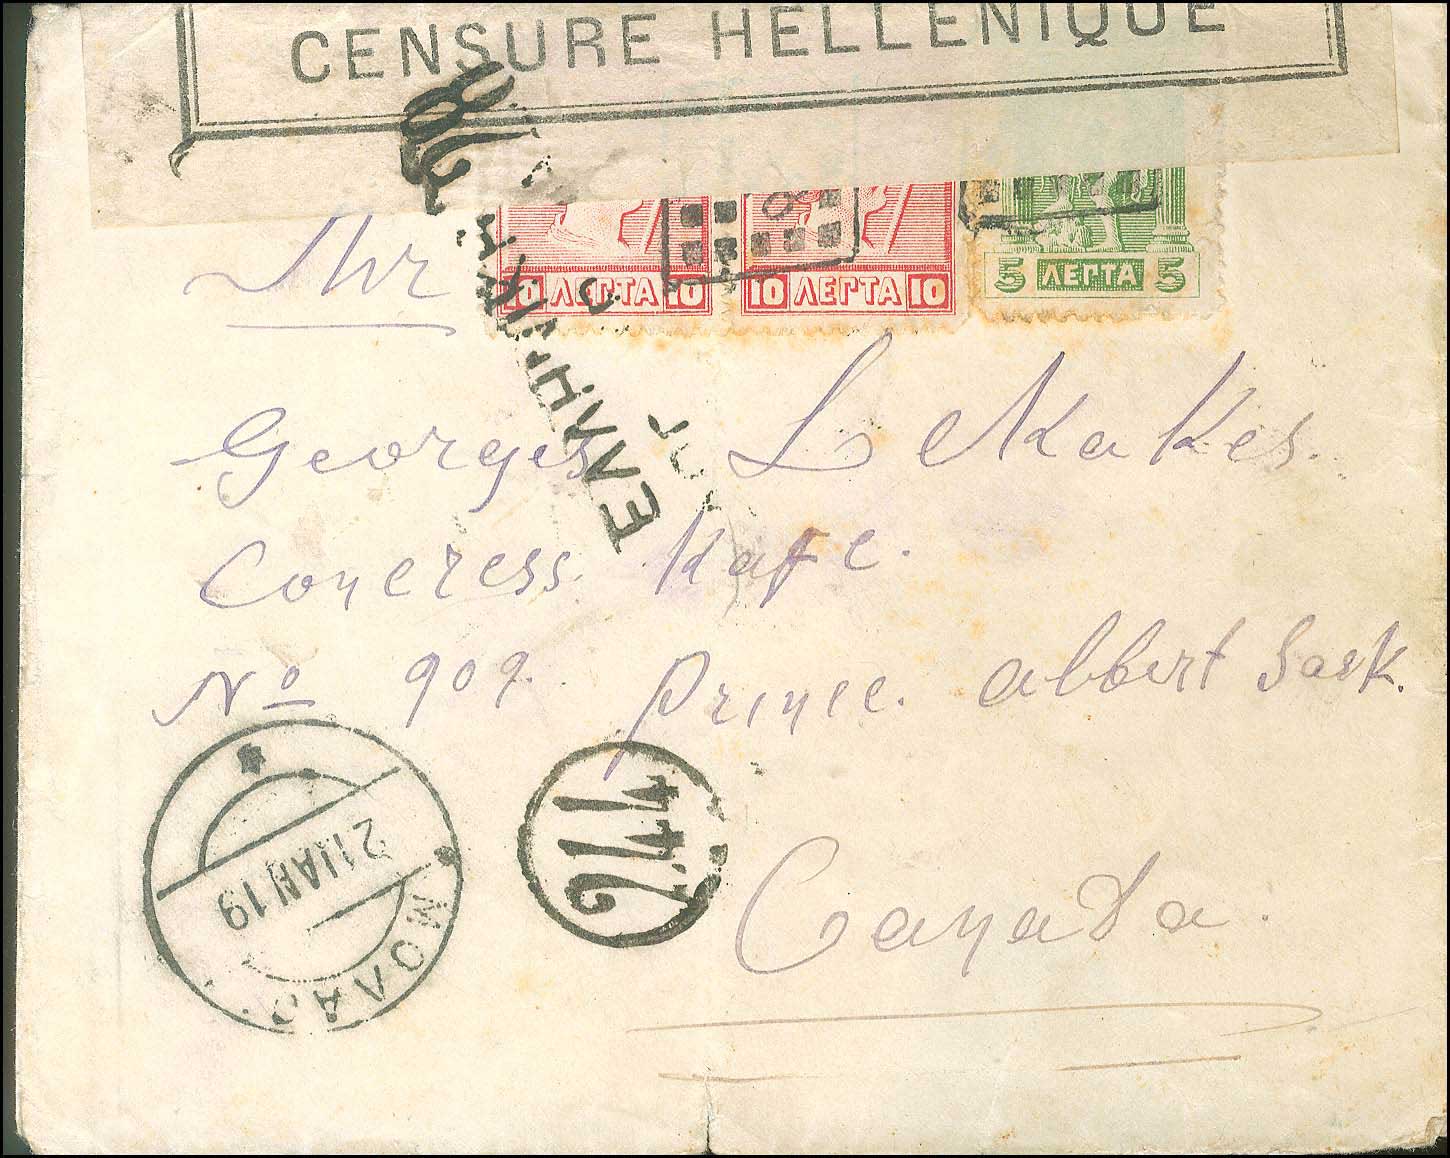 CENSURE HELLENIQUE
218
10 ΛΕΠΤΑ 10
10 ΛΕΠΤΑ 10
5 ΛΕΠΤΑ 5
Mr
Georges L Makes.
Concress Kafe.
No 909. Prince. Albert Sask.
Canada.
244
21 ΙΑΝ 19